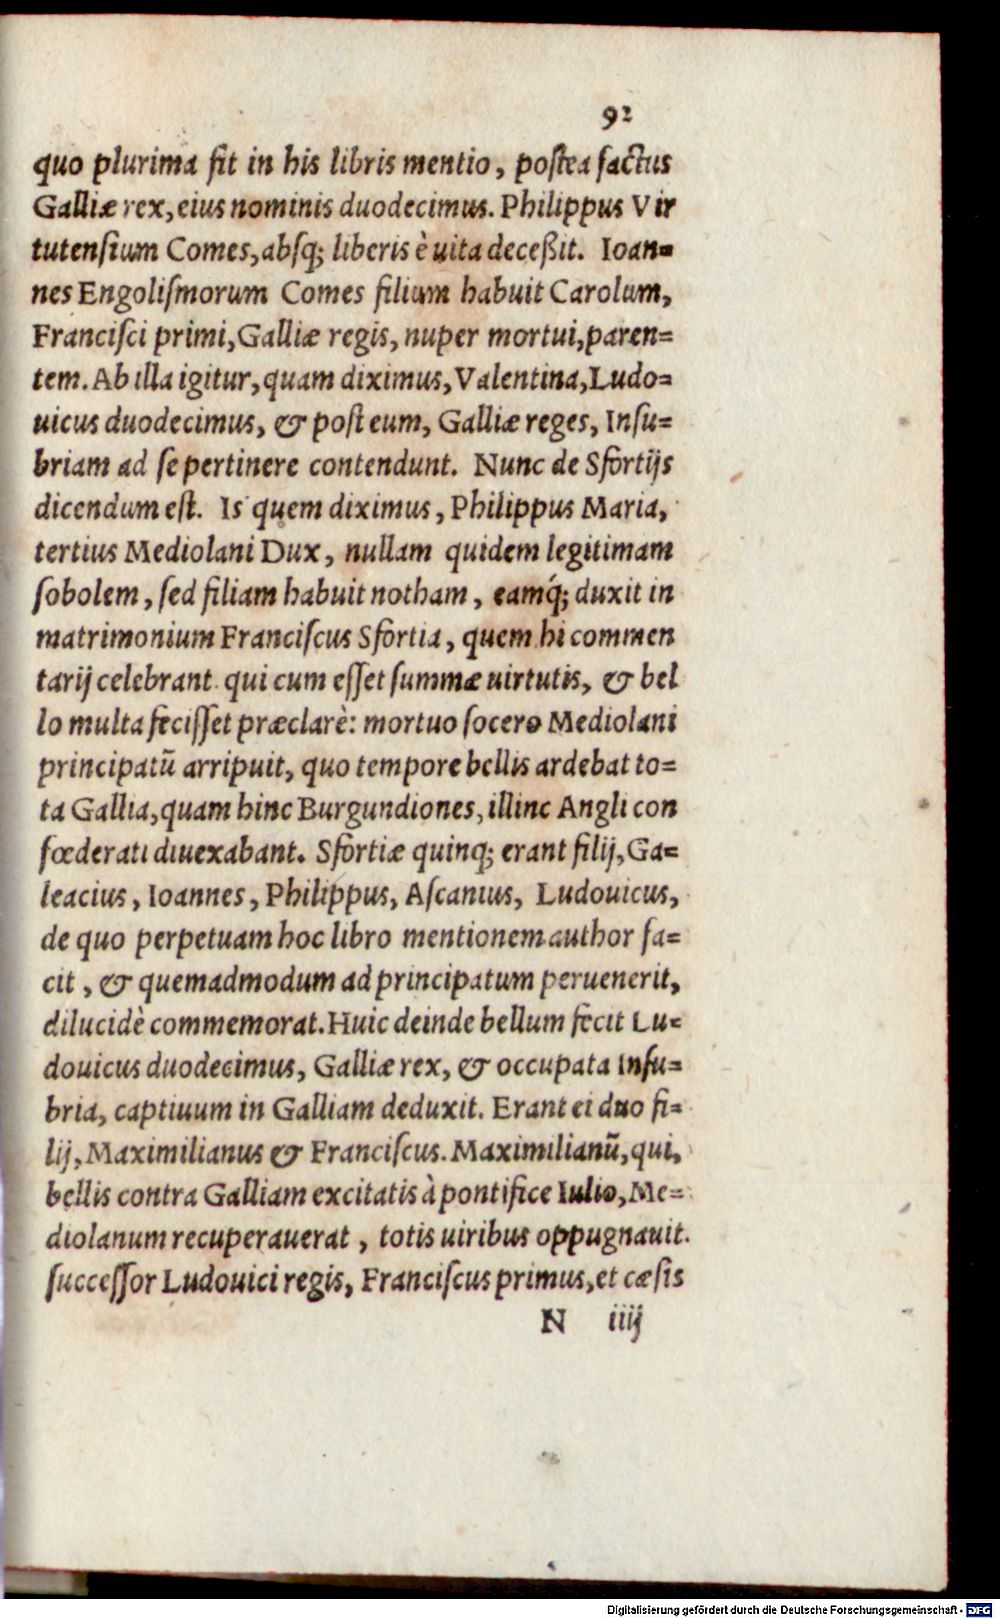 92
quo plurima fit in his libris mentio, postea factus
Galliæ rex, eius nominis duodecimus. Philippus Vir
tutensium Comes, absq; liberis è uita deceßit. Ioan=
nes Engolismorum Comes filium habuit Carolum,
Francisci primi, Galliæ regis, nuper mortui, paren=
tem. Ab illa igitur, quam diximus, Valentina, Ludo=
uicus duodecimus, & post eum, Galliæ reges, Insu=
briam ad se pertinere contendunt. Nunc de Sfortijs
dicendum est. Is quem diximus, Philippus Maria,
tertius Mediolani Dux, nullam quidem legitimam
sobolem, sed filiam habuit notham, eamq́; duxit in
matrimonium Franciscus Sfortia, quem hi commen
tarij celebrant. qui cum esset summæ uirtutis, & bel
lo multa fecisset præclarè: mortuo socero Mediolani
principatũ arripuit, quo tempore bellis ardebat to=
ta Gallia, quam hinc Burgundiones, illinc Angli con
fœderati diuexabant. Sfortiæ quinq; erant filij, Ga=
leacius, Ioannes, Philippus, Ascanius, Ludouicus,
de quo perpetuam hoc libro mentionem author fa=
cit, & quemadmodum ad principatum peruenerit,
dilucidè commemorat. Huic deinde bellum fecit Lu=
douicus duodecimus, Galliæ rex, & occupata Insu=
bria, captiuum in Galliam deduxit. Erant ei duo fi=
lij, Maximilianus & Franciscus. Maximilianũ, qui,
bellis contra Galliam excitatis à pontifice Iulio, Me=
diolanum recuperauerat, totis uiribus oppugnauit.
successor Ludouici regis, Franciscus primus, et cæsis
N iiij
Digitalisierung gefördert durch die Deutsche Forschungsgemeinschaft - DFG